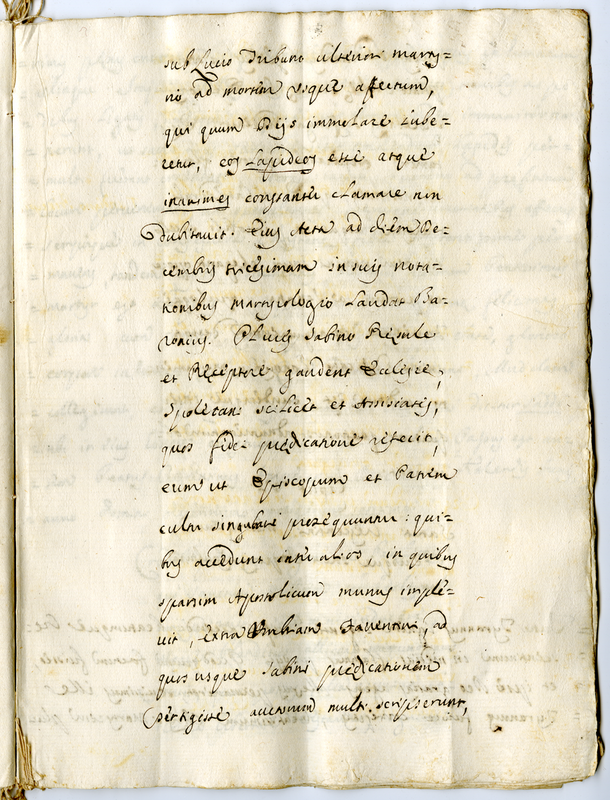 sub Lucio Tribuno ulteriori marty=
rio ad mortem usque affectum,
qui quum Dijs immolare iube=
retur, eos Lapideos esse atque
inanimes constanter clamare non
dubitavit. Eius Acta ad diem De=
cembris tricesimam in suis nota=
tionibus martyrologio laudat Ba=
ronius. Sabino Presule
et Receptore gaudent Eclesie,
Spoletana scilicet et Assisiatis,
quos fidei predicatione refecit,
eum ut Episcopum et Patrem
cultu singulari prosequuntur: qui=
bus accedunt inter alios, in quibus
sparsim Apostolicum munus imple=
vit, extra Umbriam Faventini, ad
quos usque Sabini predicationem
pertigisse auctorum multi scripserunt,